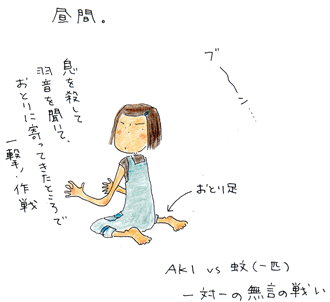 昼間。
息を殺して
羽音を聞いて、
おとりに寄ってきたところで
一撃！作戦
ブーーン…
おとり足
AKI vs 蚊(一匹)
一対一の無言の戦い